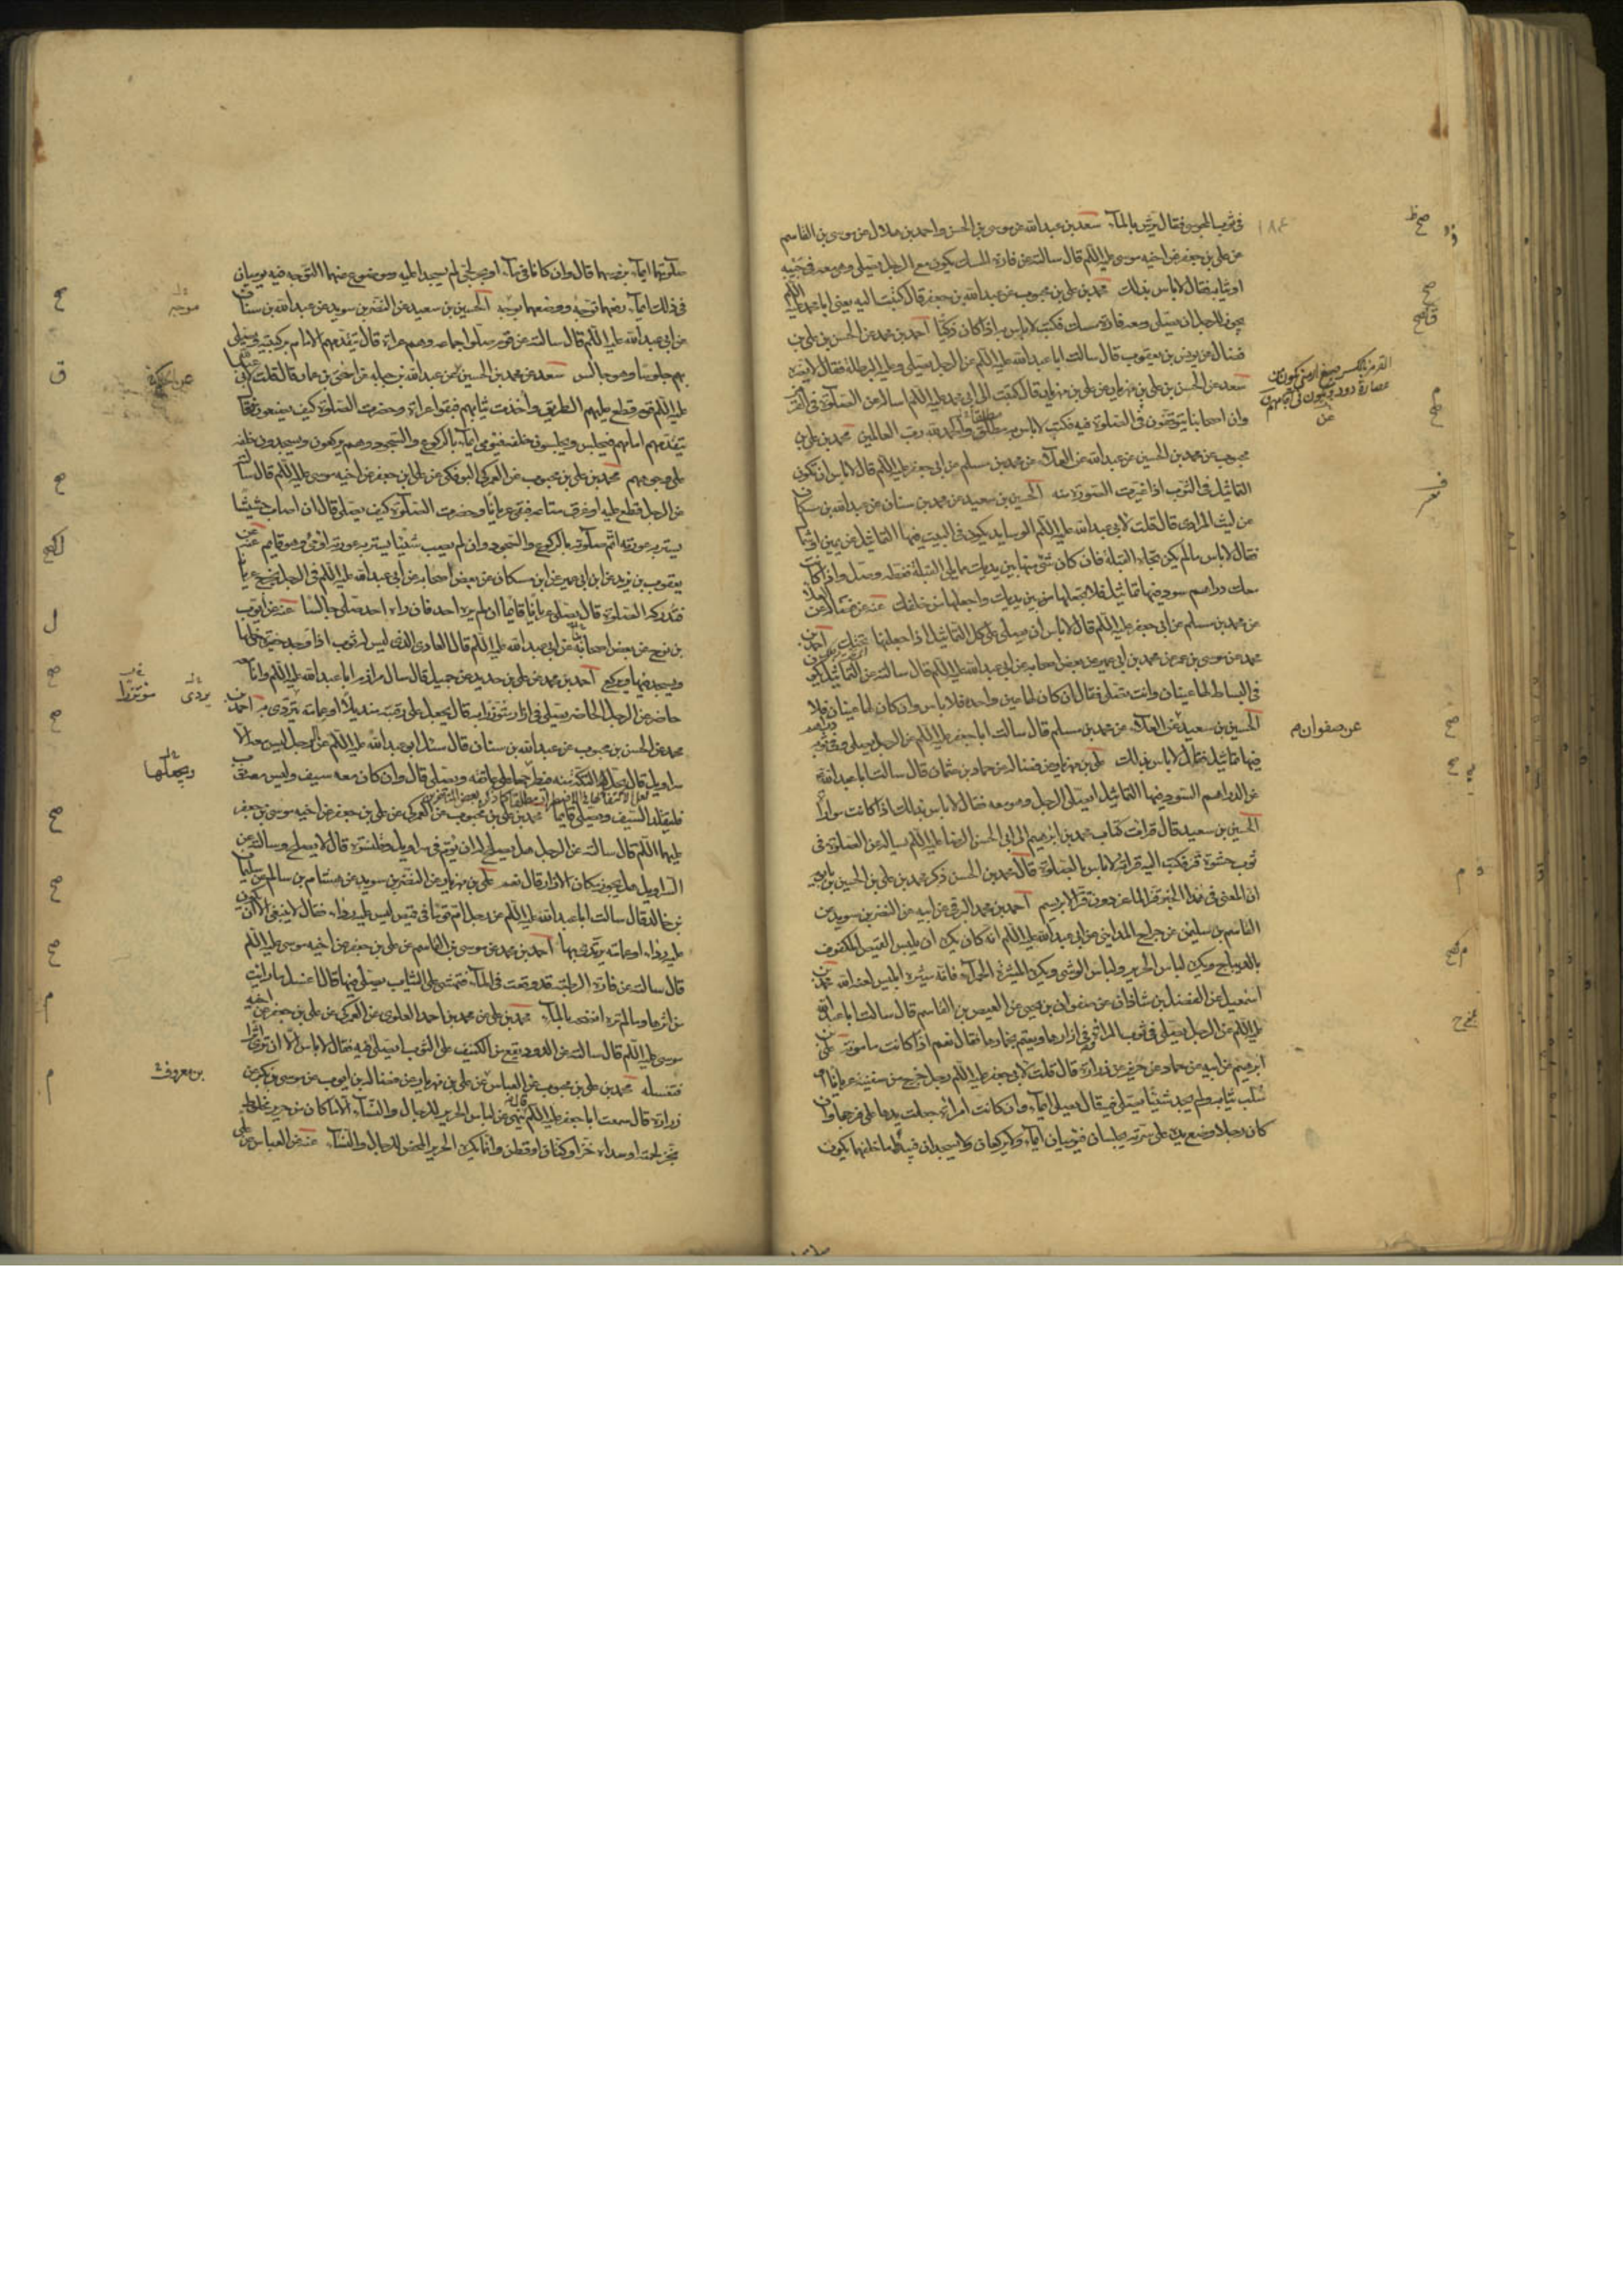 ١٨٤
في ثوب المجوسي فقال يرش بالماء سعد بن عبدالله عن موسى بن الحسن واحمد بن هلال عن موسى بن القاسم
عن علي بن جعفر عن اخيه موسى عليه السلم قال سالته عن فارة المسك يكون مع الرجل يصلي وهي معه في جيبه
او ثيابه فقال لا باس بذلك محمد بن علي بن محبوب عن عبدالله بن جعفر قال كتبت اليه يعني ابا محمد عليه السلم
يجوز للرجل ان يصلي ومعه فارة مسك فكتب لا باس به اذا كان ذكيا احمد بن محمد عن الحسن بن علي بن
فضال عن يونس بن يعقوب قال سالت ابا عبدالله عليه السلم عن الرجل يصلي وعليه البرطلة فقال لا يضره
سعد عن الحسن بن علي بن مهزيار عن علي بن مهزيار قال كتبت الى ابي محمد عليه السلم اساله عن الصلوة في القرمز
وان اصحابنا يتوقفون في الصلوة فيه فكتب لا باس به مطلق والحمد لله رب العالمين محمد بن علي بن
محبوب عن محمد بن الحسين عن عبدالله عن العلاء عن محمد بن مسلم عن ابي جعفر عليه السلم قال لا باس ان يكون
التماثيل في الثوب اذا غيرت الصورة منه الحسين بن سعيد عن محمد بن سنان عن عبدالله بن مسكان
عن ليث المرادي قال قلت لابي عبدالله عليه السلم الوسايد يكون في البيت فيها التماثيل عن يمين او شمال
فقال لا باس ما لم يكن تجاه القبلة فان كان شئ منها بين يديك مما يلي القبلة فغطه وصل واذا كانت
معك دراهم سود فيها تماثيل فلا تجعلها من بين يديك واجعلها من خلفك عنه عن فضالة عن العلاء
عن محمد بن مسلم عن ابي جعفر عليه السلم قال لا باس ان يصلي على كل التماثيل اذا جعلتها تحتك احمد بن
محمد عن موسى بن عمر عن محمد بن ابي عمير عن بعض اصحابه عن ابي عبدالله عليه السلم قال سالته عن التماثيل يكون
في البساط لها عينان وانت تصلي فقال ان كان لها عين واحدة فلا باس وان كان لها عينان فلا
الحسين بن سعيد عن العلاء عن محمد بن مسلم قال سالت ابا جعفر عليه السلم عن الرجل يصلي وفي ثوبه دراهم
فيها تماثيل فقال لا باس بذلك علي بن مهزيار عن فضالة عن حماد بن عثمان قال سالت ابا عبدالله
عن الدراهم السود فيها التماثيل ايصلي الرجل وهي معه فقال لا باس بذلك اذا كانت مواراة
الحسين بن سعيد قال قرات كتاب محمد بن ابرهيم الى ابي الحسن الرضا عليه السلم يساله عن الصلوة في
ثوب حشوه قز فكتب اليه قراته لا باس بالصلوة قال محمد بن الحسن ذكر محمد بن علي بن الحسين بن بابويه
ان المعنى في هذا الخبر قز الماعز دون قز الابريسم احمد بن محمد البرقي عن ابيه عن النضر بن سويد عن
القاسم بن سليمن عن جراح المدايني عن ابي عبدالله عليه السلم انه كان يكره ان يلبس القميص المكفوف
بالديباج ويكره لباس الحرير ولباس الوشي ويكره الميثرة الحمراء فانه ميثرة ابليس لعنه الله محمد بن
اسمعيل عن الفضل بن شاذان عن صفوان بن يحيى عن العيص بن القاسم قال سالت ابا عبدالله
عليه السلم عن الرجل يصلي في ثوب المراة وفي ازارها ويعتم بخمارها فقال نعم اذا كانت مامونة علي بن
ابرهيم عن ابيه عن حماد عن حريز عن زرارة قال قلت لابي جعفر عليه السلم رجل خرج من سفينة عريانا او
سلب ثيابه ولم يجد شيئا يصلي فيه قال يصلي ايماء وان كانت امراة جعلت يدها على فرجها وان
كان رجلا وضع يده على سوته يجلسان فيوميان ايماء ولا يركعان ولا يسجدان فيبدو ما خلفهما يكون
القرمز بالكسر صبغ ارمني يكون من
عصارة دود يكون في اجامهم
عن صفوان
صح
صح
صلوتهما ايماء برؤسهما قال وان كانا في ماء او بحر لجي لم يسجدا عليه وموضوع عنهما التوجه فيه يوميان
في ذلك ايماء رفعهما توجه ووضعهما توجه الحسين بن سعيد عن النضر بن سويد عن عبدالله بن سنان
عن ابي عبدالله عليه السلم قال سالته عن قوم صلوا جماعه وهم عراة قال يتقدمهم الامام بركبتيه ويصلي
بهم جلوسا وهو جالس سعد عن محمد بن الحسين عن عبدالله بن جبلة عن اسحق بن عمار قال قلت لابي عبدالله
عليه السلم قوم قطع عليهم الطريق واخذت ثيابهم فبقوا عراة وحضرت الصلوة كيف يصنعون فقال
يتقدمهم امامهم فيجلس ويجلسون خلفه فيومي ايماء بالركوع والسجود وهم يركعون ويسجدون خلفه
على وجوههم محمد بن علي بن محبوب عن العمركي البوفكي عن علي بن جعفر عن اخيه موسى عليه السلم قال سالته
عن الرجل قطع عليه او غرق متاعه فبقي عريانا وحضرت الصلوة كيف يصلي قال ان اصاب حشيشا
يستر به عورته اتم صلوته بالركوع والسجود وان لم يصب شيئا يستر به عورته اومى وهو قايم عنه عن
يعقوب بن يزيد عن ابن ابي عمير عن ابن مسكان عن بعض اصحابه عن ابي عبدالله عليه السلم في الرجل يخرج عريانا
فتدركه الصلوة قال يصلي عريانا قائما ان لم يره احد فان راه احد صلى جالسا عنه عن ايوب
بن نوح عن بعض اصحابنا عن ابي عبدالله عليه السلم قال العاري الذي ليس له ثوب اذا وجد حفيرة دخلها
ويسجد فيها ويركع احمد بن محمد عن علي بن حديد عن جميل قال سال مرازم ابا عبدالله عليه السلم وانا معه
حاضر عن الرجل الحاضر يصلي في ازار مؤتزرا به قال يجعل على رقبته منديلا او عمامة يتردى به احمد بن
محمد عن الحسن بن محبوب عن عبدالله بن سنان قال سئل ابو عبدالله عليه السلم عن الرجل ليس معه الا
سراويل قال يحل التكة منه فيطرحها على عاتقه ويصلي قال وان كان معه سيف وليس معه ثوب
فليقلد السيف ويصلي قائما محمد بن علي بن محبوب عن العمركي عن علي بن جعفر عن اخيه موسى بن جعفر
عليهما السلم قال سالته عن الرجل هل يصلح له ان يؤم في سراويل وقلنسوة قال لا يصلح وسالته عن
السراويل هل يجوز مكان الازار قال نعم علي بن مهزيار عن النضر بن سويد عن هشام بن سالم عن سليمان
بن خالد قال سالت ابا عبدالله عليه السلم عن رجل ام قوما في قميص ليس عليه رداء فقال لا ينبغي الا ان يكون
عليه رداء او عمامة يرتدي بها احمد بن محمد عن موسى بن القاسم عن علي بن جعفر عن اخيه موسى عليه السلم
قال سالته عن فارة الرطبة قد وقعت في الماء فتمشي على الثياب يصلي فيها قال اغسل ما رايت
من اثرها وما لم تره انضحه بالماء محمد بن علي عن محمد بن احمد العلوي عن العمركي عن علي بن جعفر عن اخيه
موسى عليه السلم قال سالته عن الدود يقع من الكنيف على الثوب ايصلي فيه فقال لا باس الا ان ترى اثرا
فتغسله محمد بن علي بن محبوب عن العباس عن علي بن مهزيار عن فضالة بن ايوب عن موسى بن بكر عن
زرارة قال سمعت ابا جعفر عليه السلم ينهى عن لباس الحرير للرجال والنساء الا ما كان من حرير مخلوط
بخز لحمته او سداه خز او كتان او قطن وانما يكره الحرير المحض للرجال والنساء عنه عن العباس عن علي
موجه
يردى
مؤتزرا
ويجعلها
بن معروف